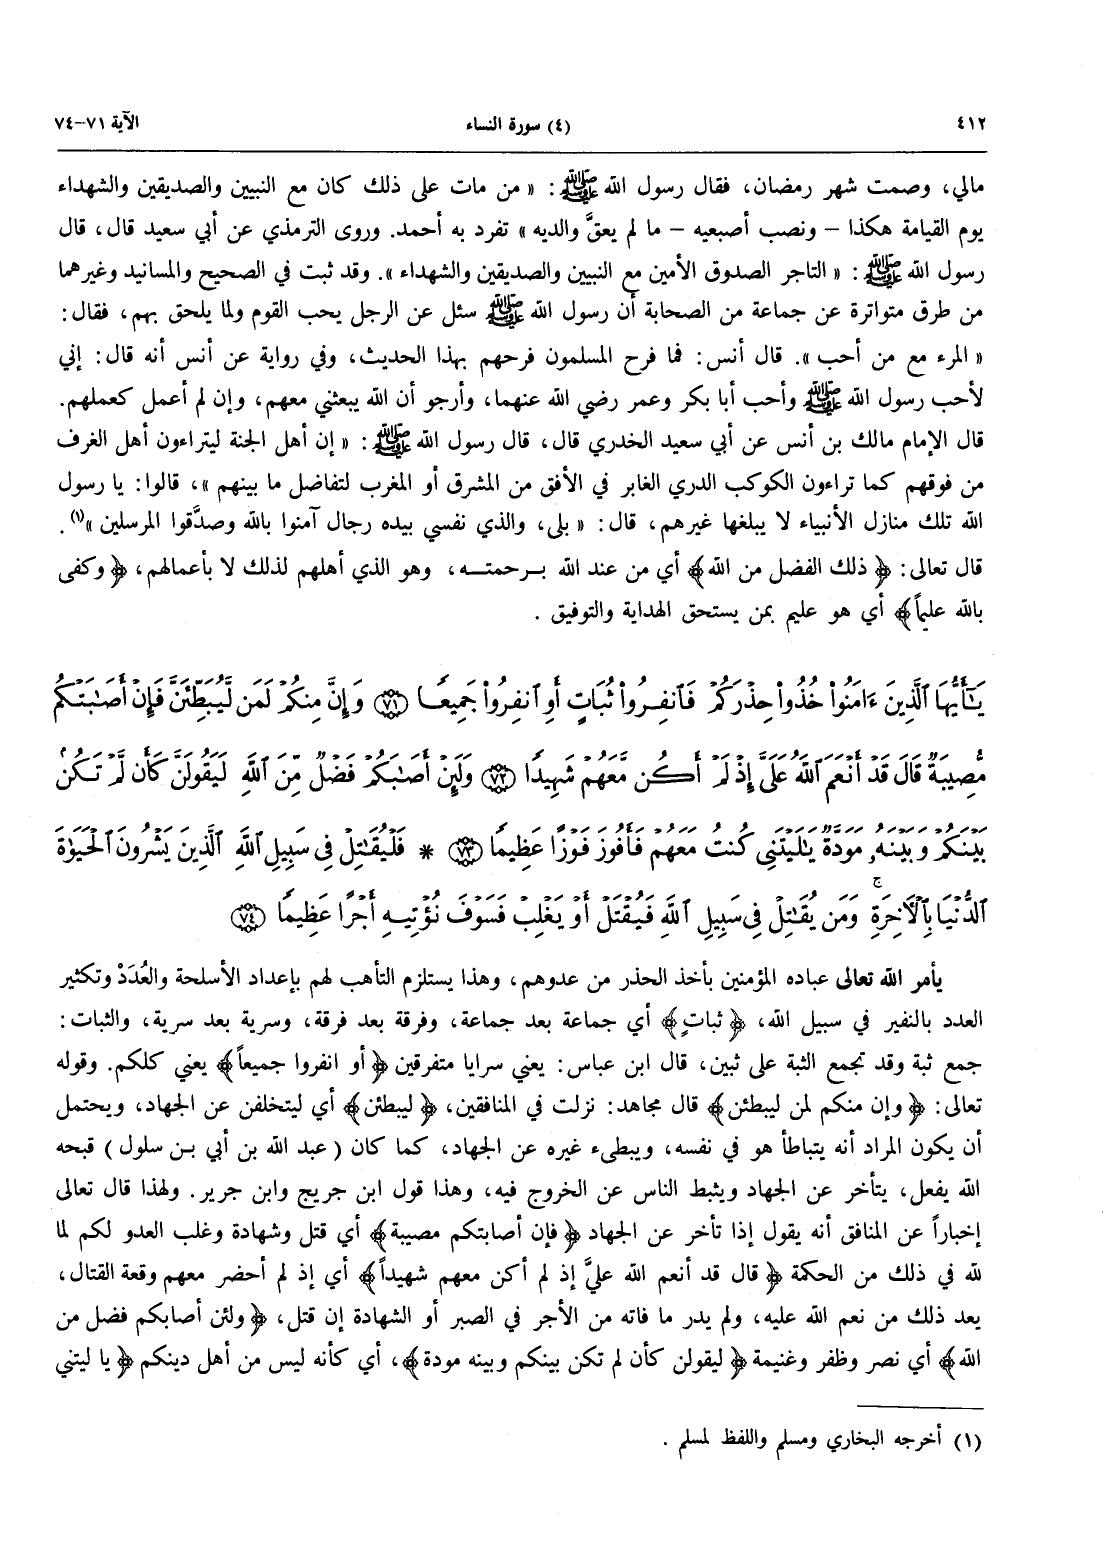 ٤١٢ (٤) سورة النساء الآية ٧١-٧٤
مالي، وصمت شهر رمضان، فقال رسول الله ﷺ : « من مات على ذلك كان مع النبيين والصديقين والشهداء
يوم القيامة هكذا – ونصب أصبعيه – ما لم يعقَّ والديه » تفرد به أحمد. وروى الترمذي عن أبي سعيد قال، قال
رسول الله ﷺ : « التاجر الصدوق الأمين مع النبيين والصديقين والشهداء ». وقد ثبت في الصحيح والمسانيد وغيرهما
من طرق متواترة عن جماعة من الصحابة أن رسول الله ﷺ سئل عن الرجل يحب القوم ولما يلحق بهم، فقال:
« المرء مع من أحب ». قال أنس: فما فرح المسلمون فرحهم بهذا الحديث، وفي رواية عن أنس أنه قال: إني
لأحب رسول الله ﷺ وأحب أبا بكر وعمر رضي الله عنهما، وأرجو أن الله يبعثني معهم، وإن لم أعمل كعملهم.
قال الإمام مالك بن أنس عن أبي سعيد الخدري قال، قال رسول الله ﷺ : « إن أهل الجنة ليتراءون أهل الغرف
من فوقهم كما تراءون الكوكب الدري الغابر في الأفق من المشرق أو المغرب لتفاضل ما بينهم »، قالوا: يا رسول
الله تلك منازل الأنبياء لا يبلغها غيرهم، قال: « بلى، والذي نفسي بيده رجال آمنوا بالله وصدَّقوا المرسلين »(١).
قال تعالى: ﴿ ذلك الفضل من الله﴾ أي من عند الله برحمته، وهو الذي أهلهم لذلك لا بأعمالهم، ﴿ وكفى
بالله عليماً﴾ أي هو عليم بمن يستحق الهداية والتوفيق .
يَـٰٓأَيُّهَا ٱلَّذِينَ ءَامَنُوا۟ خُذُوا۟ حِذْرَكُمْ فَٱنفِرُوا۟ ثُبَاتٍ أَوِ ٱنفِرُوا۟ جَمِيعًا ۝٧١ وَإِنَّ مِنكُمْ لَمَن لَّيُبَطِّئَنَّ فَإِنْ أَصَـٰبَتْكُم
مُّصِيبَةٌ قَالَ قَدْ أَنْعَمَ ٱللَّهُ عَلَىَّ إِذْ لَمْ أَكُن مَّعَهُمْ شَهِيدًا ۝٧٢ وَلَئِنْ أَصَـٰبَكُمْ فَضْلٌ مِّنَ ٱللَّهِ لَيَقُولَنَّ كَأَن لَّمْ تَكُنۢ
بَيْنَكُمْ وَبَيْنَهُۥ مَوَدَّةٌ يَـٰلَيْتَنِى كُنتُ مَعَهُمْ فَأَفُوزَ فَوْزًا عَظِيمًا ۝٧٣ * فَلْيُقَـٰتِلْ فِى سَبِيلِ ٱللَّهِ ٱلَّذِينَ يَشْرُونَ ٱلْحَيَوٰةَ
ٱلدُّنْيَا بِٱلْـَٔاخِرَةِ ۚ وَمَن يُقَـٰتِلْ فِى سَبِيلِ ٱللَّهِ فَيُقْتَلْ أَوْ يَغْلِبْ فَسَوْفَ نُؤْتِيهِ أَجْرًا عَظِيمًا ۝٧٤
يأمر الله تعالى عباده المؤمنين بأخذ الحذر من عدوهم، وهذا يستلزم التأهب لهم بإعداد الأسلحة والعُدَدْ وتكثير
العدد بالنفير في سبيل الله، ﴿ ثباتٍ﴾ أي جماعة بعد جماعة، وفرقة بعد فرقة، وسرية بعد سرية، والثبات:
جمع ثبة وقد تجمع الثبة على ثبين، قال ابن عباس: يعني سرايا متفرقين ﴿ أو انفروا جميعاً﴾ يعني كلكم. وقوله
تعالى: ﴿ وإن منكم لمن ليبطئن﴾ قال مجاهد: نزلت في المنافقين، ﴿ ليبطئن﴾ أي ليتخلفن عن الجهاد، ويحتمل
أن يكون المراد أنه يتباطأ هو في نفسه، ويبطىء غيره عن الجهاد، كما كان ( عبد الله بن أبي بن سلول ) قبحه
الله يفعل، يتأخر عن الجهاد ويثبط الناس عن الخروج فيه، وهذا قول ابن جريج وابن جرير. ولهذا قال تعالى
إخباراً عن المنافق أنه يقول إذا تأخر عن الجهاد ﴿ فإن أصابتكم مصيبة﴾ أي قتل وشهادة وغلب العدو لكم لما
لله في ذلك من الحكمة ﴿ قال قد أنعم الله عليَّ إذ لم أكن معهم شهيداً﴾ أي إذ لم أحضر معهم وقعة القتال،
يعد ذلك من نعم الله عليه، ولم يدر ما فاته من الأجر في الصبر أو الشهادة إن قتل، ﴿ ولئن أصابكم فضل من
الله﴾ أي نصر وظفر وغنيمة ﴿ ليقولن كأن لم تكن بينكم وبينه مودة﴾، أي كأنه ليس من أهل دينكم ﴿ يا ليتني
(١) أخرجه البخاري ومسلم واللفظ لمسلم .